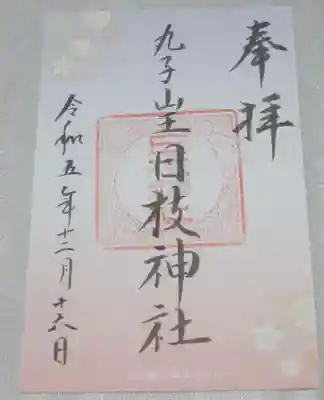 奉拝
九子山王日枝神社
令和五年十二月十六日